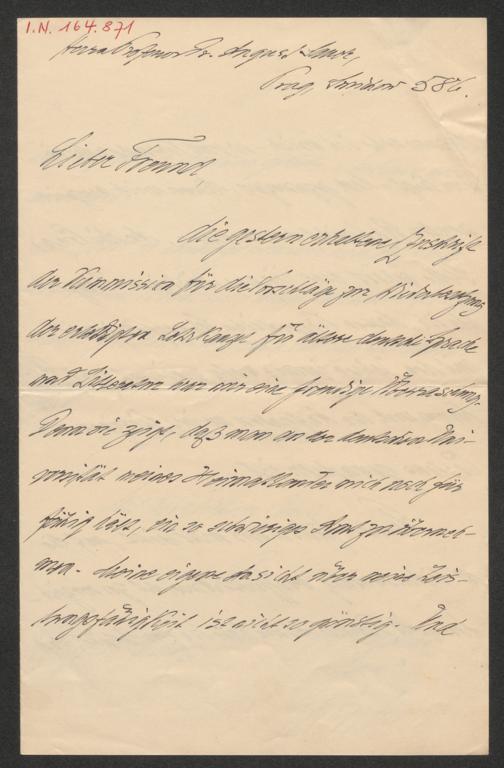 I.N. 164.871
Herrn Professor Dr. August Sauer,
Prag, Smichov 586.
Lieber Freund,
die gestern erhaltene Zuschrift
der Kommission für die Vorschläge zur Wiederbesetzung
der erledigten Lehrkanzel für ältere deutsche Sprache
und Litteratur war mir eine freudige Überraschung.
Denn sie zeigt, daß man an der deutschen Uni-
versität meines Heimatlandes mich noch für
fähig hält, ein so schwieriges Amt zu überneh-
men. Meine eigene Ansicht über meine Leis-
tungsfähigkeit ist nicht so günstig. Und